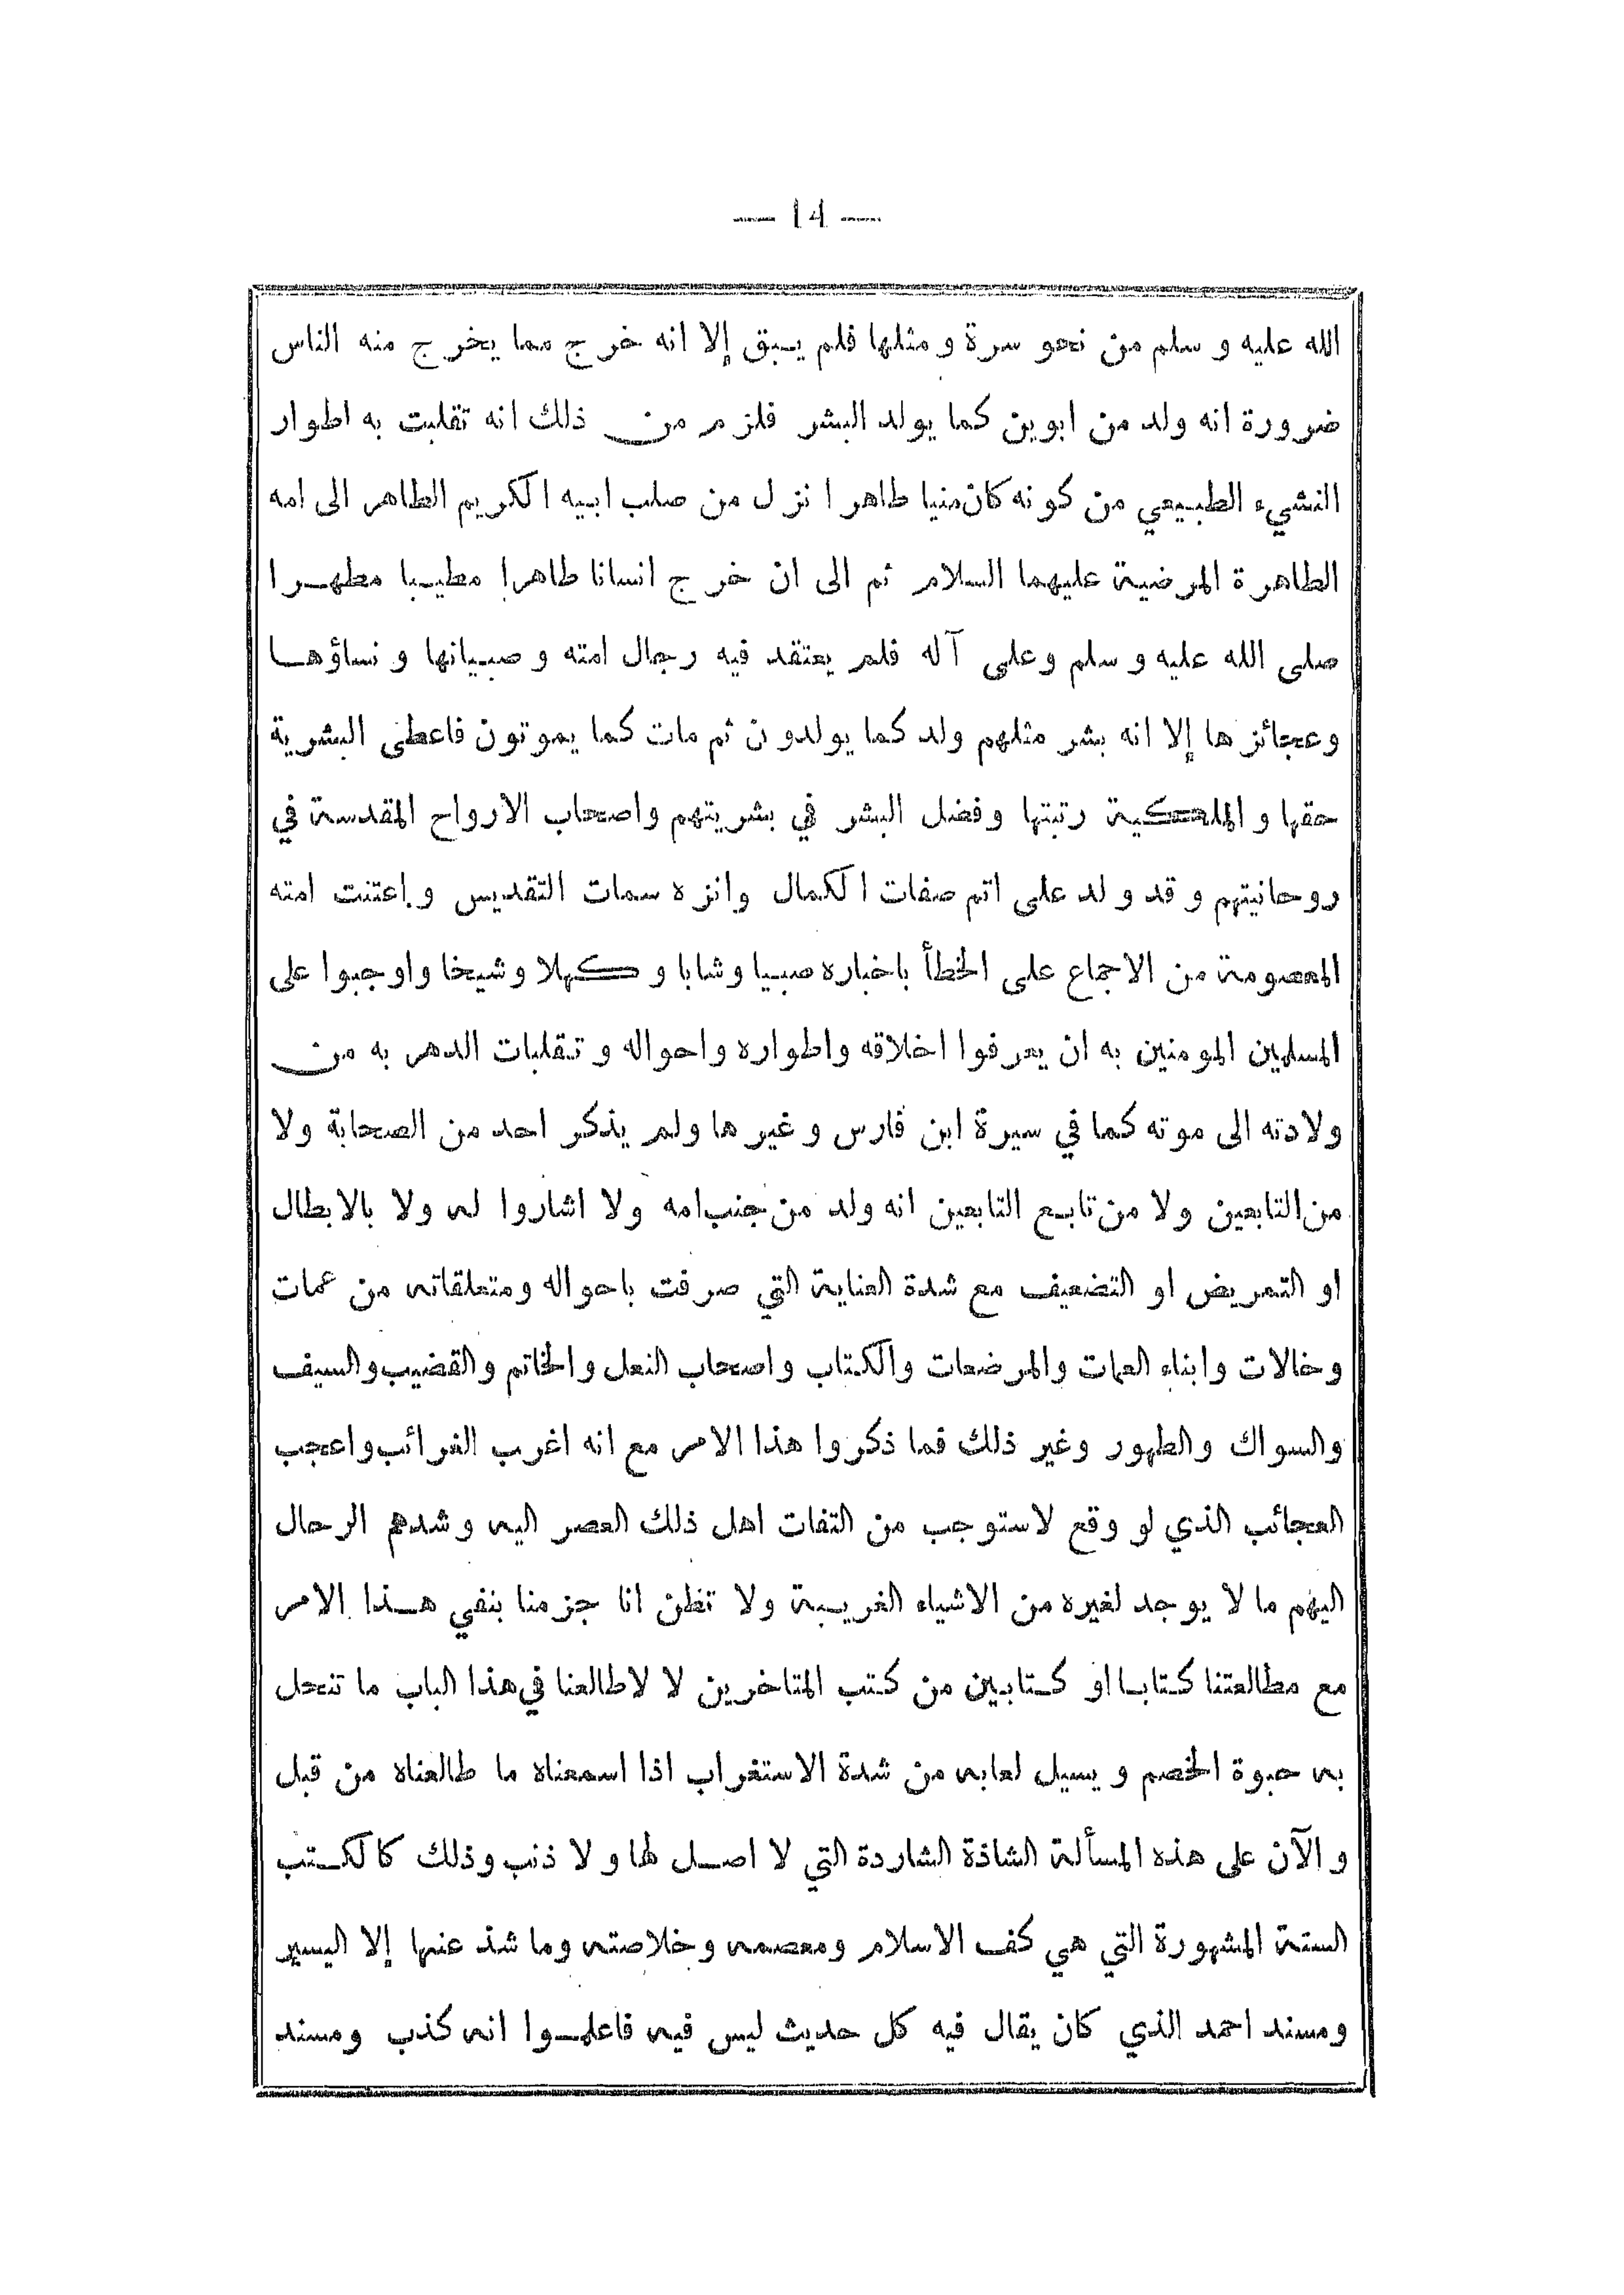 — 14 —
الله عليه و سلم من نحو سرة و مثلها فلم يبق إلا انه خرج مما يخرج منه الناس
ضرورة انه ولد من ابوين كما يولد البشر فلزم من ذلك انه تقلبت به اطوار
النشيء الطبيعي من كونه كان منيا طاهرا نزل من صلب ابيه الكريم الطاهر الى امه
الطاهرة المرضية عليهما السلام ثم الى ان خرج انسانا طاهرا مطيبا مطهرا
صلى الله عليه و سلم وعلى آله فلم يعتقد فيه رجال امته و صبيانها و نساؤها
وعجائزها إلا انه بشر مثلهم ولد كما يولدون ثم مات كما يموتون فاعطى البشرية
حقها و الملكية رتبتها وفضل البشر في بشريتهم واصحاب الارواح المقدسة في
روحانيتهم و قد ولد على اتم صفات الكمال وانزه سمات التقديس و اعتنت امته
المعصومة من الاجماع على الخطأ باخباره صبيا وشابا و كهلا وشيخا واوجبوا على
المسلمين المومنين به ان يعرفوا اخلاقه واطواره واحواله و تقلبات الدهر به من
ولادته الى موته كما في سيرة ابن فارس وغيرها ولم يذكر احد من الصحابة ولا
من التابعين ولا من تابع التابعين انه ولد من جنب امه ولا اشاروا له ولا بالابطال
او التمريض او التضعيف مع شدة العناية التي صرفت باحواله ومتعلقاته من عمات
وخالات وابناء العمات والمرضعات والكتاب واصحاب النعل والخاتم والقضيب والسيف
والسواك والطهور وغير ذلك فما ذكروا هذا الامر مع انه اغرب الغرائب واعجب
العجائب الذي لو وقع لاستوجب من التفات اهل ذلك العصر اليه وشدهم الرحال
اليهم ما لا يوجد لغيره من الاشياء الغريبة ولا تظن انا جزمنا بنفي هذا الامر
مع مطالعتنا كتابا او كتابين من كتب المتاخرين لا لا طالعنا في هذا الباب ما تنحل
به حبوة الخصم و يسيل لعابه من شدة الاستغراب اذا اسمعناه ما طالعناه من قبل
و الآن على هذه المسألة الشاذة الشاردة التي لا اصل لها و لا ذنب وذلك كالكتب
الستة المشهورة التي هي كف الاسلام ومعصمه وخلاصته وما شذ عنها إلا اليسير
ومسند احمد الذي كان يقال فيه كل حديث ليس فيه فاعلموا انه كذب ومسند